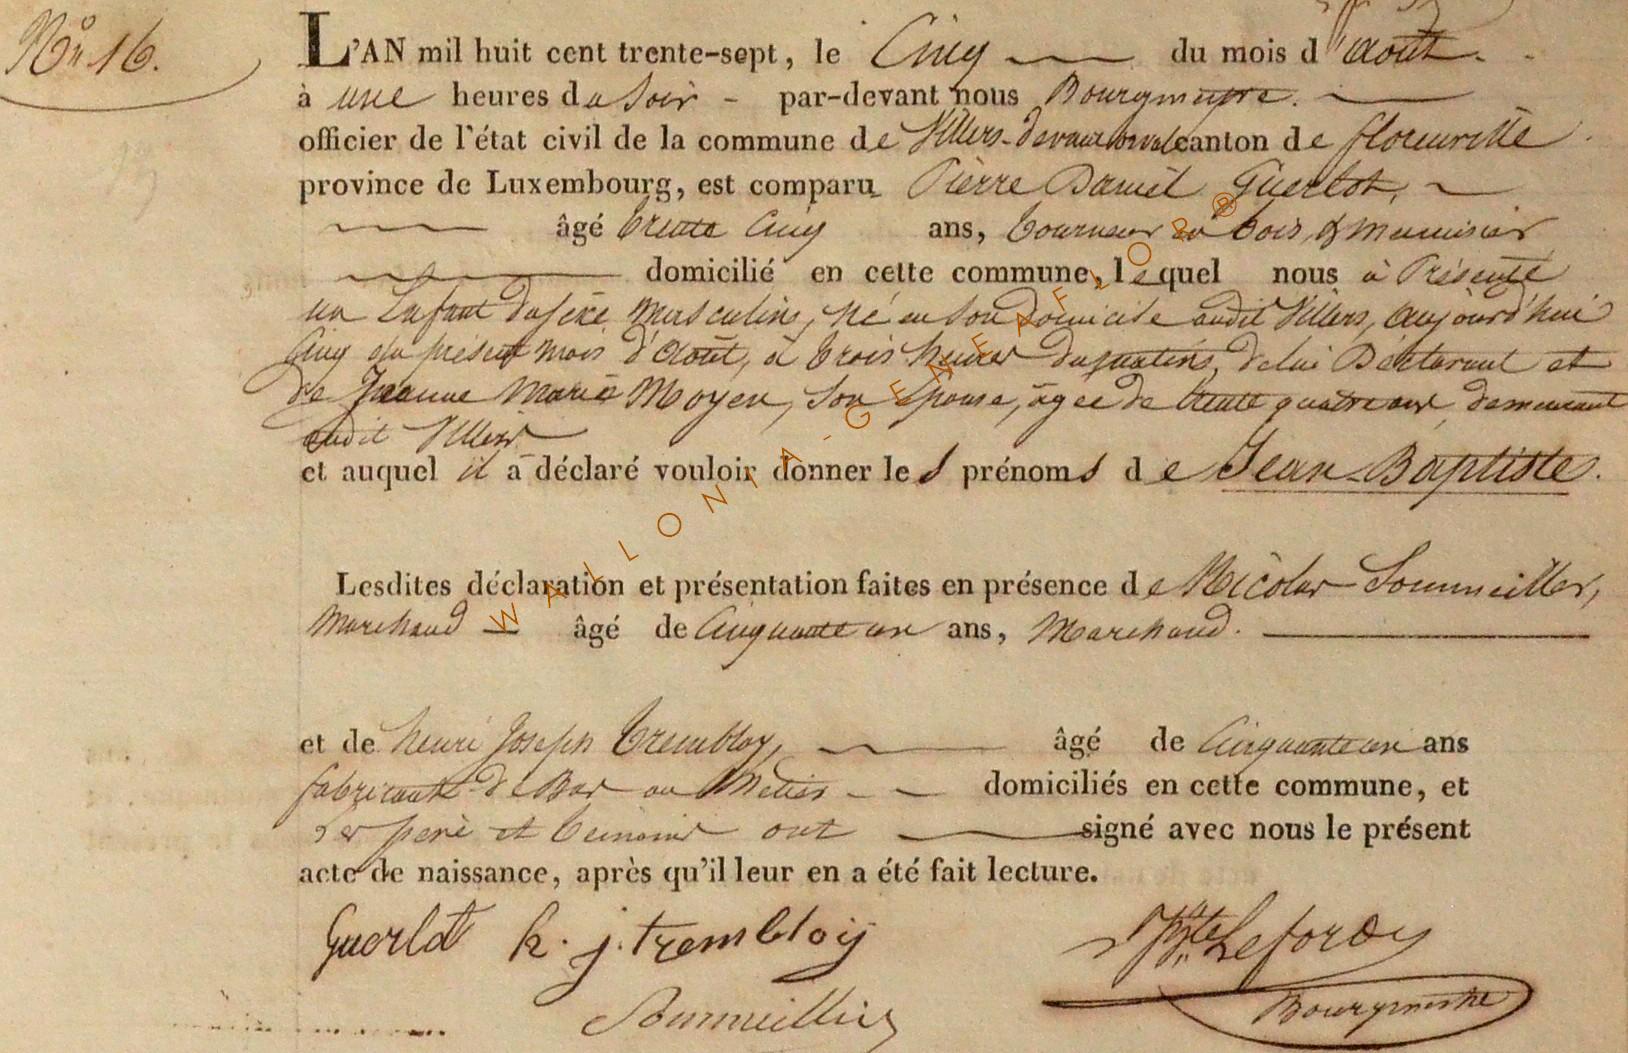 N° 16.
L'AN mil huit cent trente-sept, le Cinq du mois d'août.
à une heures du Soir - par-devant nous Bourgmestre.
officier de l'état civil de la commune de Villers-devant orval canton de florenville
province de Luxembourg, est comparu Pierre Daniel Guerlot,
âgé trente Cinq ans, tourneur en bois & menuisier
domicilié en cette commune, lequel nous à Présenté
un Enfant du sexe masculin, né en son Domicile audit Villers, aujourd'hui
Cinq du présent mois d'Août, à trois heures du matins, de lui Déclarant et
de Jeanne Marie Moyen, Son Epouse, agée de trente quatre ans, demeurant
audit Villers
et auquel il a déclaré vouloir donner les prénoms de Jean-Baptiste.
Lesdites déclaration et présentation faites en présence de Nicolas Sommeillier,
Marchand âgé de Cinquante un ans, Marchand.
et de henri Joseph Trembloy, âgé de Cinquante un ans
fabricant de Bas au Métier domiciliés en cette commune, et
père et témoins ont signé avec nous le présent
acte de naissance, après qu'il leur en a été fait lecture.
Guerlot h. j. trembloy Bte Leforcy
Sommeillier Bourgmestre
WALLONIA-GENEAFLOR®